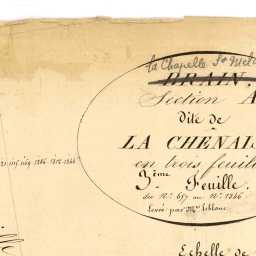 la Chapelle St Mel
BRAIN.
Section A
dite de
LA CHÊNAIS
en trois feuill
3ème Feuille.
du N° 617 au N° 1346
Levée par Mr Leblanc
Echelle de